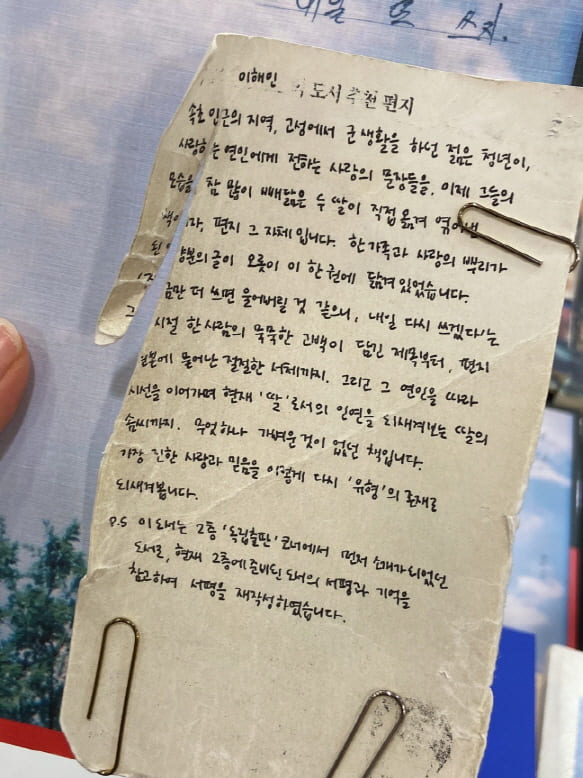 쓰지.
이해인
도서추천편지
속초 인근의 지역, 고성에서 군 생활을 하던 젊은 청년이,
사랑하는 연인에게 전하는 사랑의 문장들을, 이제 그들의
모습을 참 많이 빼닮은 두 딸이 직접 옮겨 엮어낸
편지 그 자체입니다. 한 가족과 사랑의 뿌리가
된 양분의 글이 오롯이 이 한 권에 담겨 있었습니다.
금만 더 쓰면 울어버릴 것 같으니, 내일 다시 쓰겠다'는
시절 한 사람의 묵묵한 고백이 담긴 제목부터, 편지
본에 묻어난 절절한 서체까지. 그리고 그 연인을 따라
시선을 이어가며 현재 '딸'로서의 인연을 되새겨보는 딸의
솜씨까지. 무엇하나 가벼운 것이 없던 책입니다.
가장 진한 사랑과 믿음을 이렇게 다시 '유형'의 존재로
되새겨봅니다.
P.S 이 도서는 2층 '독립출판' 코너에서 먼저 소개가 되었던
도서로, 현재 2층에 준비된 도서의 서평과 기억을
참고하여 서평을 재작성하였습니다.